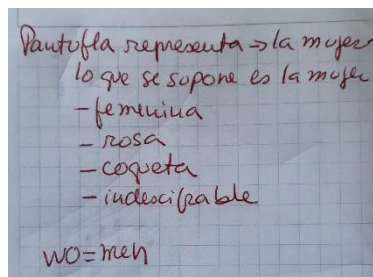 Pantufla representa → la mujer
lo que se supone es la mujer
- femenina
- rosa
- coqueta
- indescifrable
wo=men